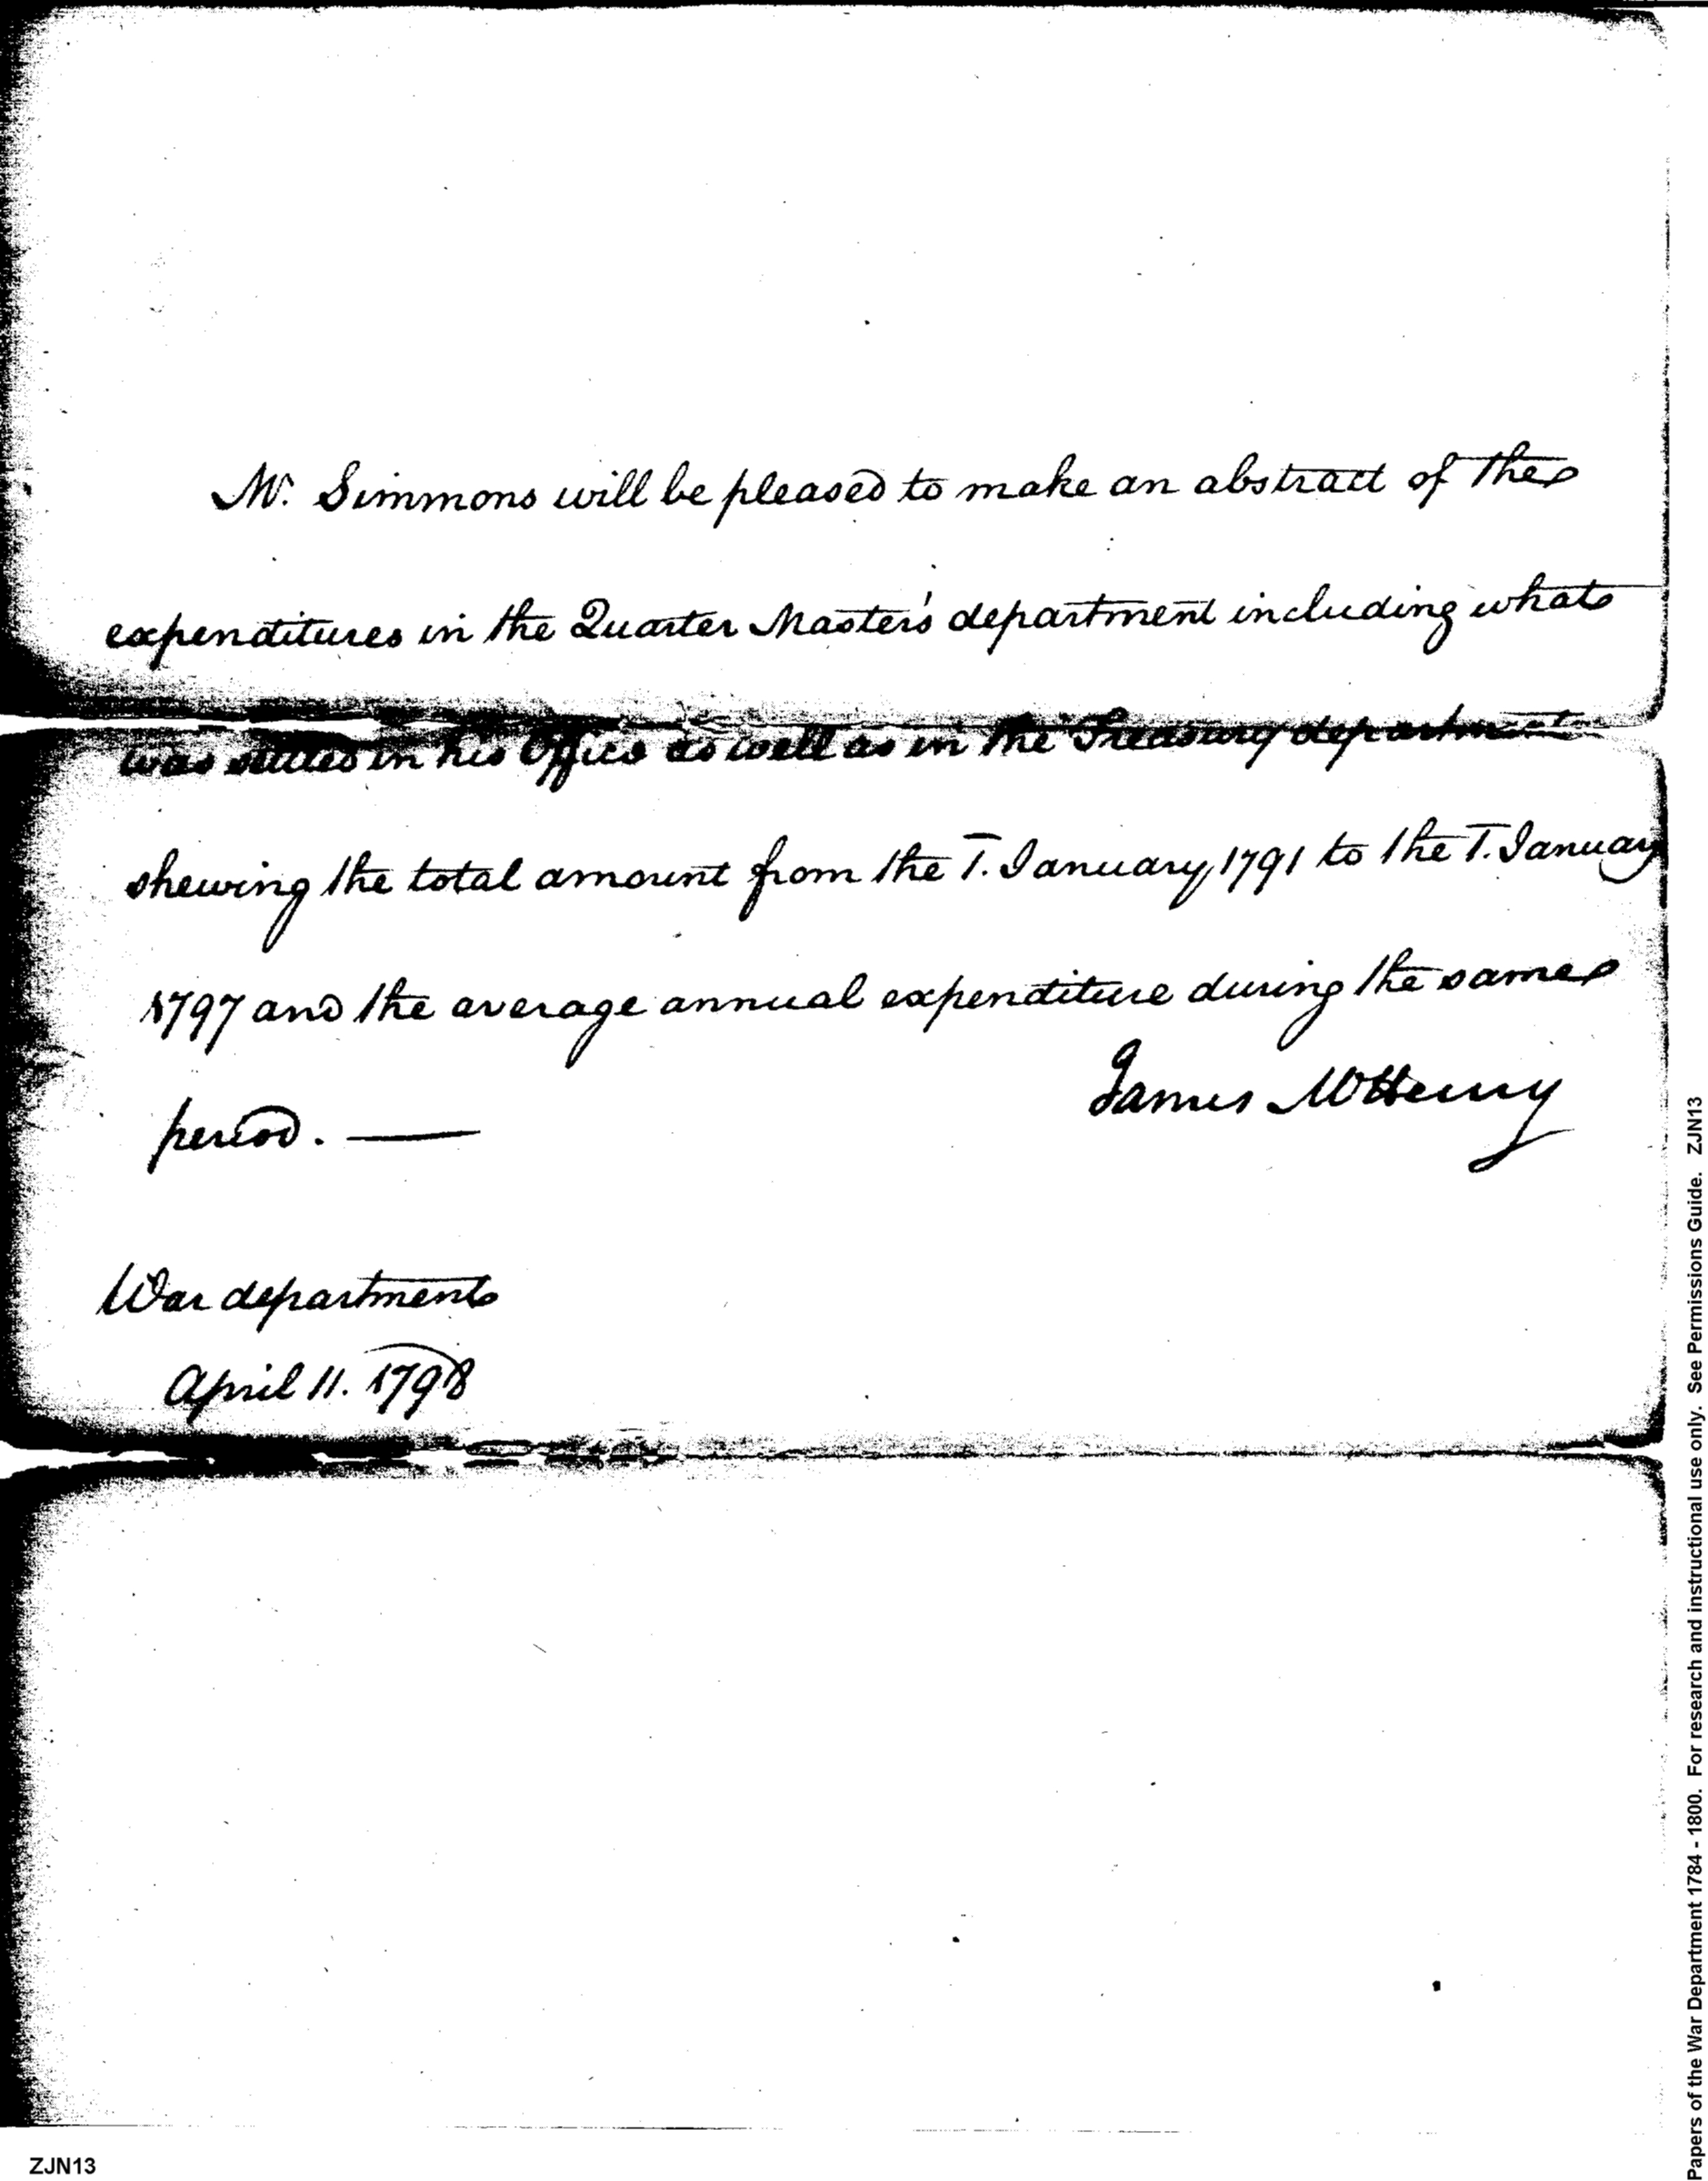 Mr. Simmons will be pleased to make an abstract of the
expenditures in the Quarter Master's department including what
was settled in his Office as well as in the Treasury department
shewing the total amount from the 1. January 1791 to the 1. January
1797 and the average annual expenditure during the same
period. —
James McHenry
War department
April 11. 1798
ZJN13
Papers of the War Department 1784 - 1800. For research and instructional use only. See Permissions Guide. ZJN13